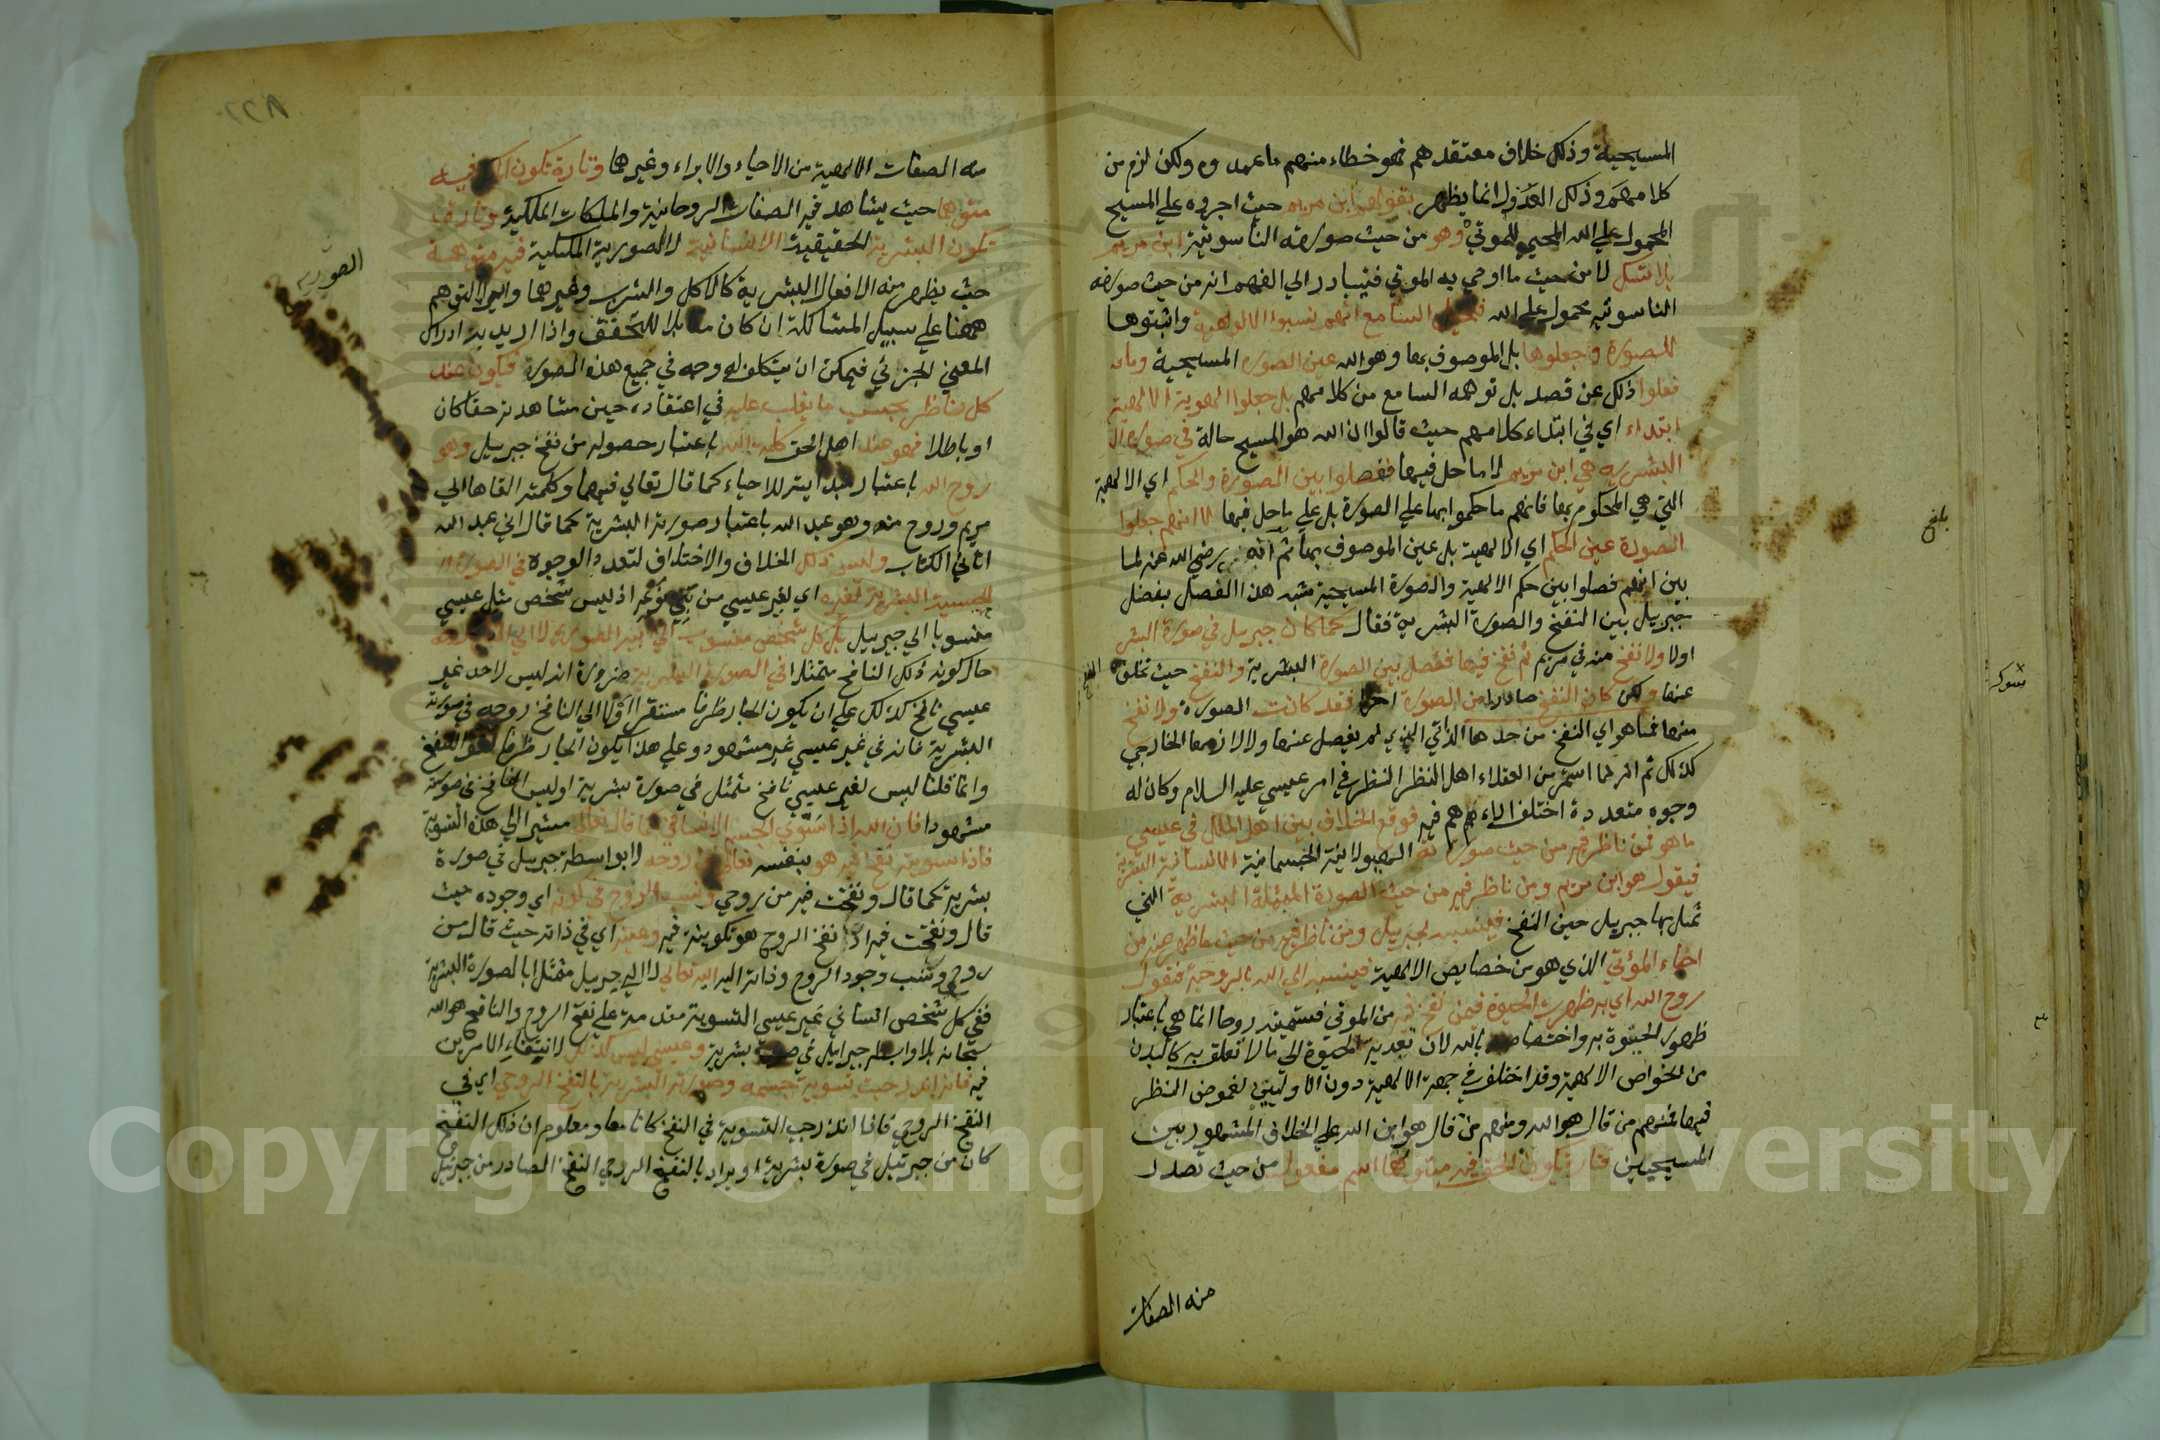 المسيحية وذلك خلاف معتقدهم فهو خطاء منهم ما عمدوه ولكن لزم من
كلامهم وذلك العدول انما يظهر بقولهم ابن مريم حيث اجروه علي المسيح
المحمول علي الله المحيي للموتي وهو من حيث صورته الناسوتية ابن مريم
بلا شك لا من حيث ما احيي به الموتي فيتبادر الي الفهم انه من حيث صورته
الناسوتيه محمول علي الله فتخيل السامع انهم نسبوا الالوهية واثبتوها
للصورة وجعلوها بل الموصوف بها وهو الله عين الصورة المسيحية وما
فعلوا ذلك عن قصد بل توهمه السامع من كلامهم بل جعلوا الهوية الالهية
ابتداء اي في ابتداء كلامهم حيث قالوا ان الله هو المسيح حالة في صورة
البشرية هي ابن مريم لا ما حل فيها ففصلوا بين الصورة والحكم اي الالهية
التي هي المحكوم بها فانهم ما حكموا بها علي الصورة بل علي ما حل فيها لا انهم جعلوا
الصورة عين الحكم اي الالهية بل عين الموصوف بها ثم انه رضي الله عنه لما
بين انهم فصلوا بين حكم الالهية والصورة المسيحية شبه هذا الفصل بفصل
جبريل بين النفخ والصورة البشرية فقال كما كان جبريل في صورة البشر
اولا ولا نفخ منه في مريم ثم نفخ فيها ففصل بين الصورة البشرية والنفخ حيث تخلف
عنها ولكن كان النفخ صادرا من الصورة اخرا فقد كانت الصورة ولا نفخ
منها فما هو اي النفخ من حدها الذاتي الذي لم يفصل عنها ولا لازمها الخارجي
كذلك ثم انه لما استمر من العقلاء اهل النظر النظر في امر عيسي عليه السلام وكان له
وجوه متعددة اختلف اراءهم فيه فوقع الخلاف بين اهل الملل في عيسي
ما هو فمن ناظر فيه من حيث صورته الهيولانية الجسمانية الانسانية البشرية
فيقول هو ابن مريم ومن ناظر فيه من حيث الصورة الممثلة البشرية التي
تمثل بها جبريل حين النفخ فينسبه لجبريل ومن ناظر فيه من حيث ما ظهر عنه من
احياء الموتي الذي هو من خصايص الالهية فينسبه الي الله بالروحية فيقول
روح الله اي به ظهرت الحيوة فيمن نفخ فيه من الموتي فتسميته روحا انما هي باعتبار
ظهور الحيوة به واختصاصه بالله لان تعدية الحيوة الي ما لا تعلق به كالبدن
من الخواص الالهية وقد اختلف في جهة الالهية دون الاوليين لغموض النظر
فيها فمنهم من قال هو الله ومنهم من قال هو ابن الله علي الخلاف المشهور بين
المسيحيين فتارة يكون الحق فيه متوهما اسم مفعول من حيث تصدر
منه الصفات
بلغ
منه الصفات الالهية من الاحياء والابراء وغيرها وتارة تكون الملك فيه
متوهما حيث يشاهد فيه الصفات الروحانية والملكات الملكية وتارة
تكون البشرية الحقيقية الانسانية لا الصورية الملكية فيه متوهمة
حيث يظهر منه الافعال البشرية كالاكل والشرب وغيرهما وايراد التوهم
ههنا علي سبيل المشاكلة ان كان مقابلا للتحقق واذا اريد به ادراك
المعني الجزئي فيمكن ان يتكلف له وجه في جميع هذه الصورة فيكون عند
كل ناظر بحسب ما يغلب عليه في اعتقاده حين مشاهدته حقا كان
او باطلا فهو عند اهل الحق كلمة الله باعتبار حصوله من نفخ جبريل وهو
روح الله باعتبار مبدايته للاحياء كما قال تعالي فيهما وكلمته القاها الي
مريم وروح منه وهو عبد الله باعتبار صورته البشرية كما قال اني عبد الله
اتاني الكتاب وليس ذلك الخلاف والاختلاف لتعدد الوجوه في الصورة
الحسية البشرية لغيره اي لغير عيسي من بني نوعه اذ ليس شخص مثل عيسي
منسوبا الي جبريل بل كل شخص منسوب الي ابيه الصوري لا الي النافخ روحه
حال كون ذلك النافخ متمثلا في الصورة البشرية ضرورة انه ليس لاحد غير
عيسي نافخ كذلك علي ان يكون الجار ظرفا مستقرا او الي النافخ روحه في صورة
البشرية فانه في غير عيسي غير مشهود وعلي هذا يكون الجار ظرفا لغوا للنفخ
وانما قلنا ليس لغير عيسي نافخ متمثل في صورة بشرية او ليس النافخ في صورة
مشهودا فان الله اذا سوي الجسم الانساني كما قال تعالي مشيرا الي هذه التسوية
فاذا سويته نفخ فيه هو بنفسه تعالي من روحه لا بواسطة جبريل في صورة
بشرية كما قال ونفخت فيه من روحي ونسب الروح في كونه اي وجوده حيث
قال ونفخت فيه اذ نفخ الروح هو تكوينه فيه وعينه اي في ذاته حيث قال من
روحي ونسب وجود الروح وذاته اليه اليه تعالي لا الي جبريل متمثلا بالصورة البشرية
ففي كل شخص انساني غير عيسي التسوية مقدمة علي نفخ الروح والنافخ هو الله
سبحانه بلا واسطة جبرايل في صورة بشرية وعيسي ليس كذلك لانتفاء الامرين
فيه فانه اندرجت تسوية جسمه وصورته البشرية بالنفخ الروحي اي في
النفخ الروحي فاذا اندرجب التسوية في النفخ كانا معا ومعلوم ان ذلك النفخ
كان من جبرئيل في صورة بشرية او يراد بالنفخ الروحي النفخ الصادر من جبرئيل
الصورية
Copyright © King Saud University